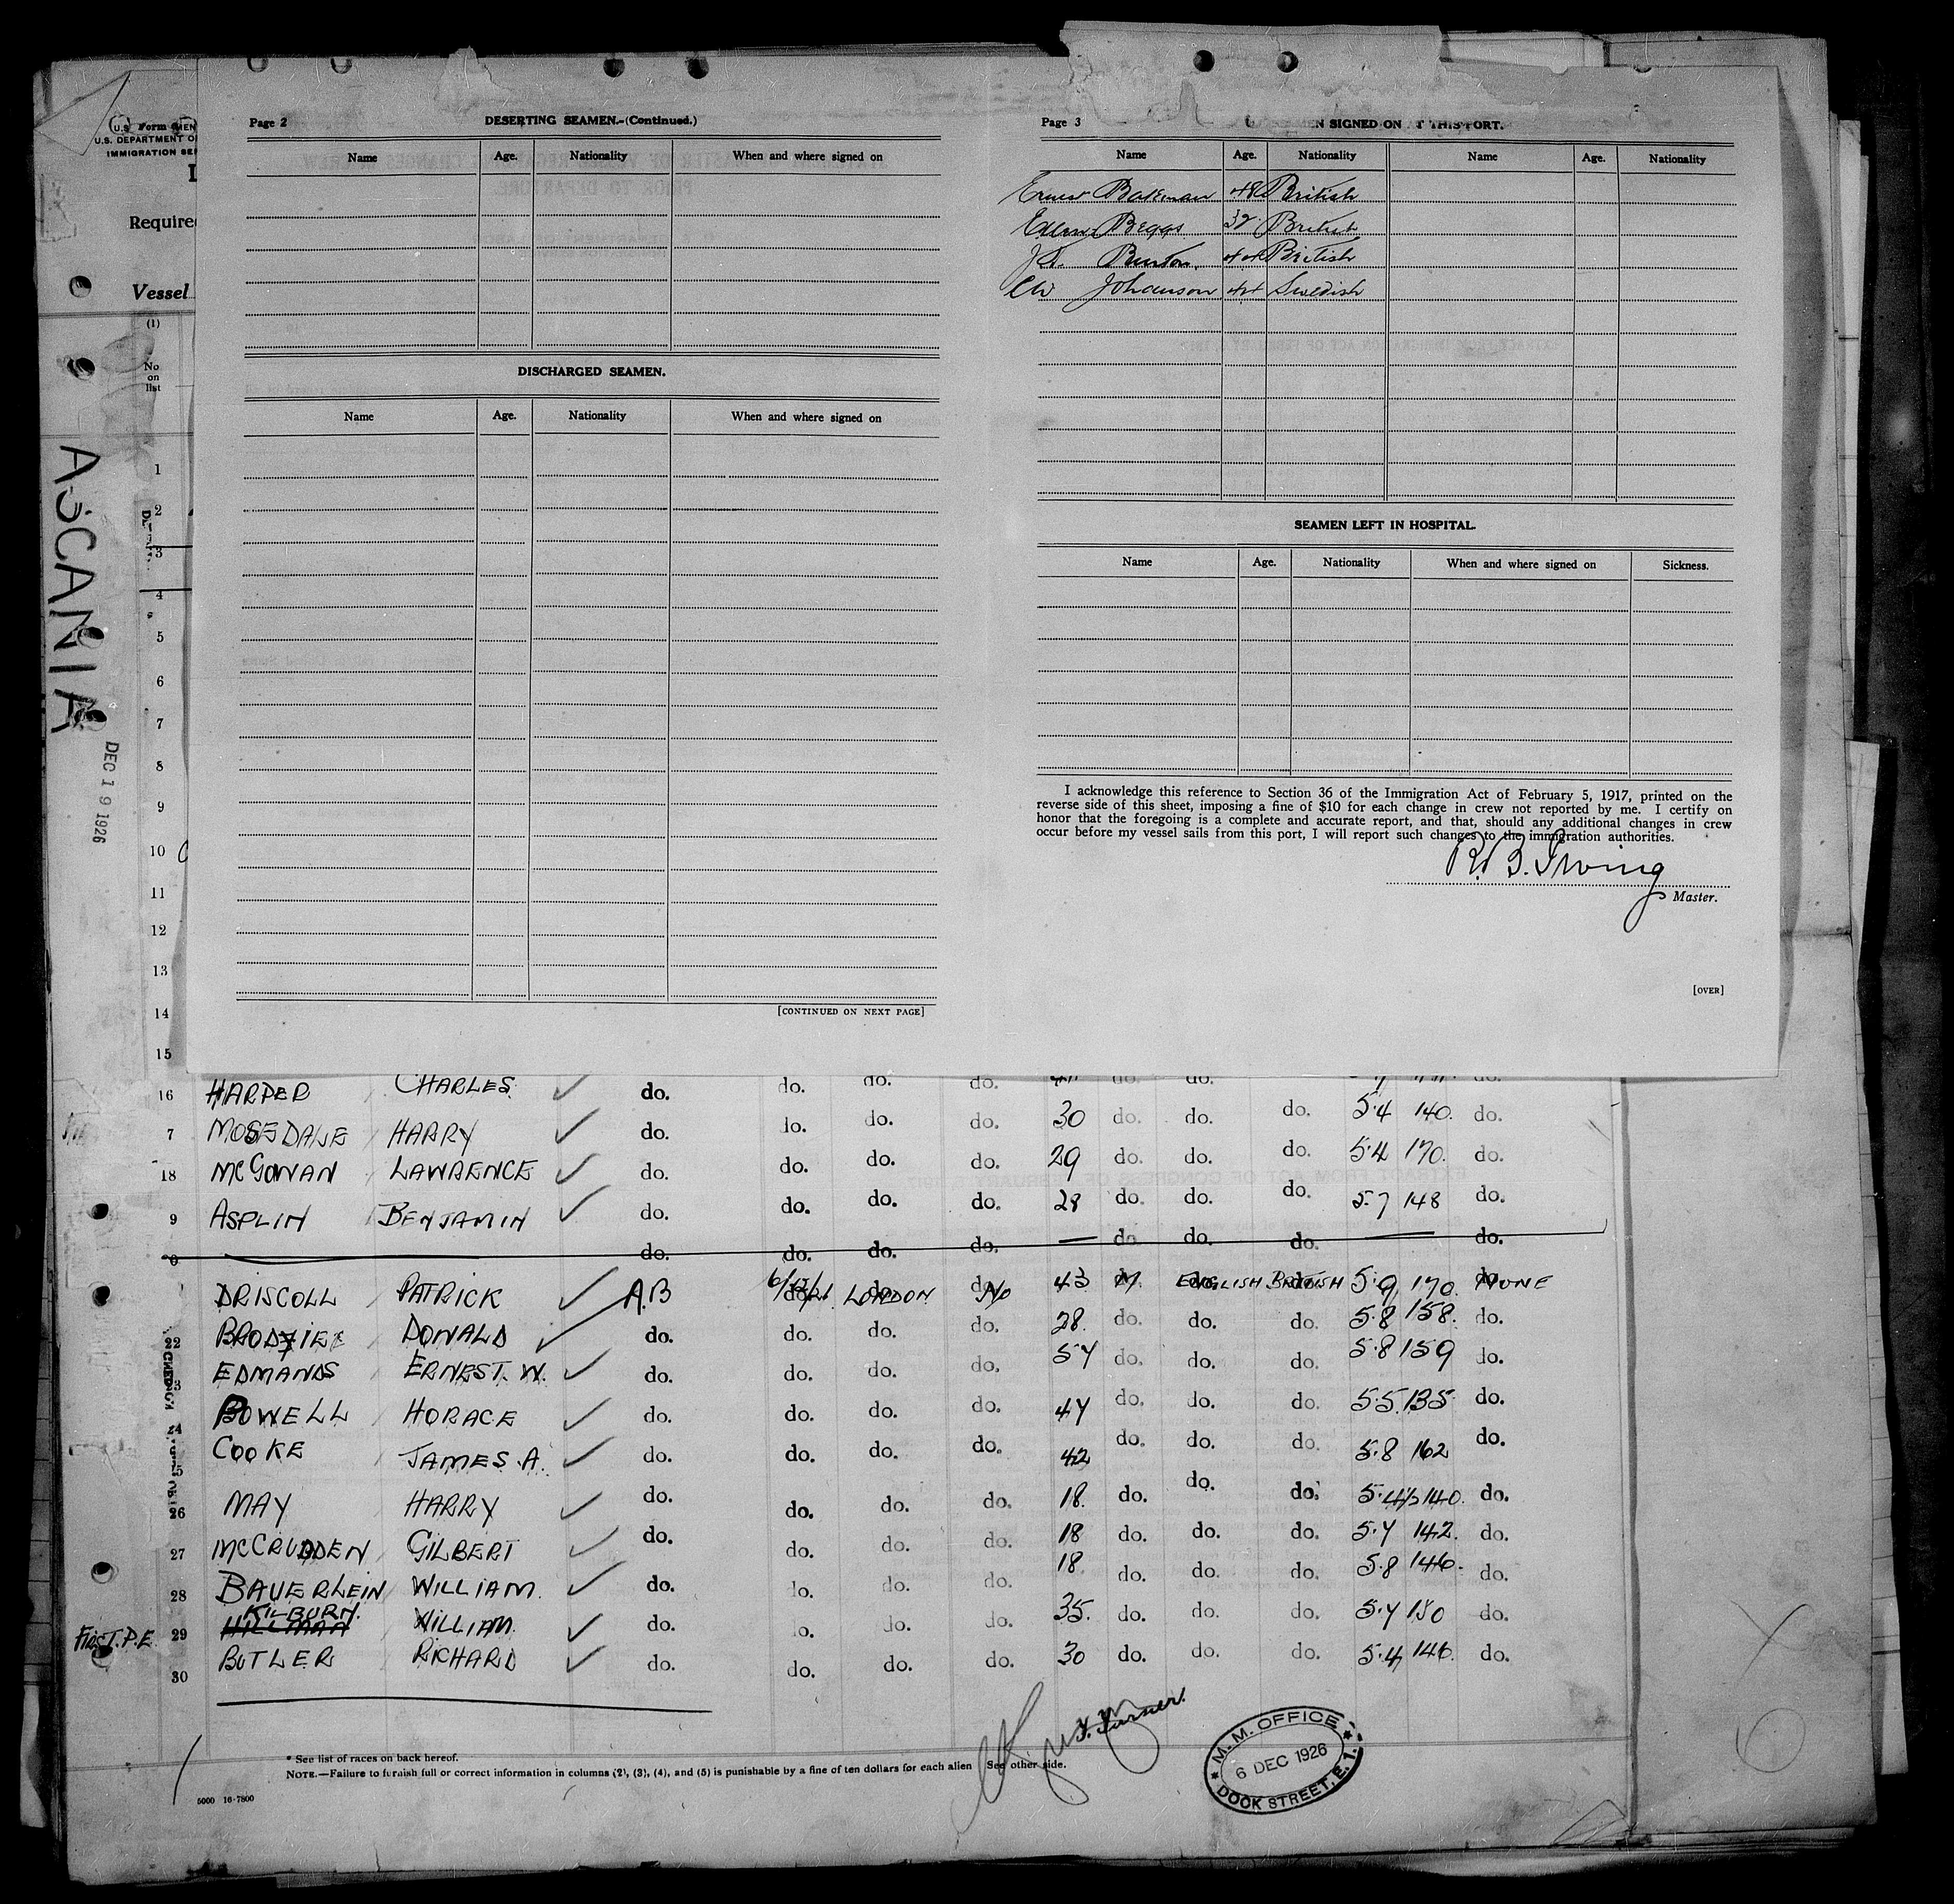 U.S. DEPARTMENT O
IMMIGRATION SE
Require
Vessel
(1)
No on list
ASCANIA
DEC 19 1926
Page 2
DESERTING SEAMEN.-(Continued.)
Name Age. Nationality When and where signed on
DISCHARGED SEAMEN.
Name Age. Nationality When and where signed on
[CONTINUED ON NEXT PAGE]
Page 3
EN SIGNED ON AT THIS PORT.
Name Age. Nationality Name Age. Nationality
Ernest Bateman 48 British
Beggs 32 British
Burton 44 British
Johanson 44 Swedish
SEAMEN LEFT IN HOSPITAL.
Name Age. Nationality When and where signed on Sickness.
I acknowledge this reference to Section 36 of the Immigration Act of February 5, 1917, printed on the
reverse side of this sheet, imposing a fine of $10 for each change in crew not reported by me. I certify on
honor that the foregoing is a complete and accurate report, and that, should any additional changes in crew
occur before my vessel sails from this port, I will report such changes to the immigration authorities.
R.B. Irving
Master.
[OVER]
1
2
3
4
5
6
7
8
9
10
11
12
13
14
15
16 HARPER CHARLES do. do. do. do. do. do. do.
7 MOSEDALE HARRY do. do. do. do. 30 do. do. do. 5.4 140. do.
18 McGOWAN LAWRENCE do. do. do. do. 29 do. do. do. 5.4 170. do.
9 ASPLIN BENJAMIN do. do. do. do. 28 do. do. do. 5.7 148 do.
0 do. do. do. do. do. do. do. do.
DRISCOLL PATRICK A.B LONDON No 43 M. ENGLISH BRITISH 5.9 170. NONE
22 BRODIE DONALD do. do. do. do. 28. do. do. do. 5.8 158. do.
3 EDMANDS ERNEST. W. do. do. do. do. 57 do. do. do. 5.8 159 do.
24 BOWELL HORACE do. do. do. do. 47 do. do. do. 5.5. 135. do.
5 COOKE JAMES. A. do. do. do. do. 42 do. do. do. 5.8 162 do.
26 MAY HARRY do. do. do. do. 18. do. do. do. 5.4½ 140. do.
27 McCRUDDEN GILBERT do. do. do. do. 18 do. do. do. 5.7 142. do.
28 BAUERLEIN WILLIAM. do. do. do. do. 18. do. do. do. 5.8 146. do.
KILBURN.
FIRST. P.E. 29 HILLMAN WILLIAM. do. do. do. do. 35. do. do. do. 5.7 150 do.
30 BUTLER RICHARD do. do. do. do. 30 do. do. do. 5.4 146. do.
* See list of races on back hereof.
NOTE.—Failure to furnish full or correct information in columns (2), (3), (4), and (5) is punishable by a fine of ten dollars for each alien See other side.
5000 16-7800
Turner.
M. M. OFFICE
6 DEC 1926
DOCK STREET, E. 1.